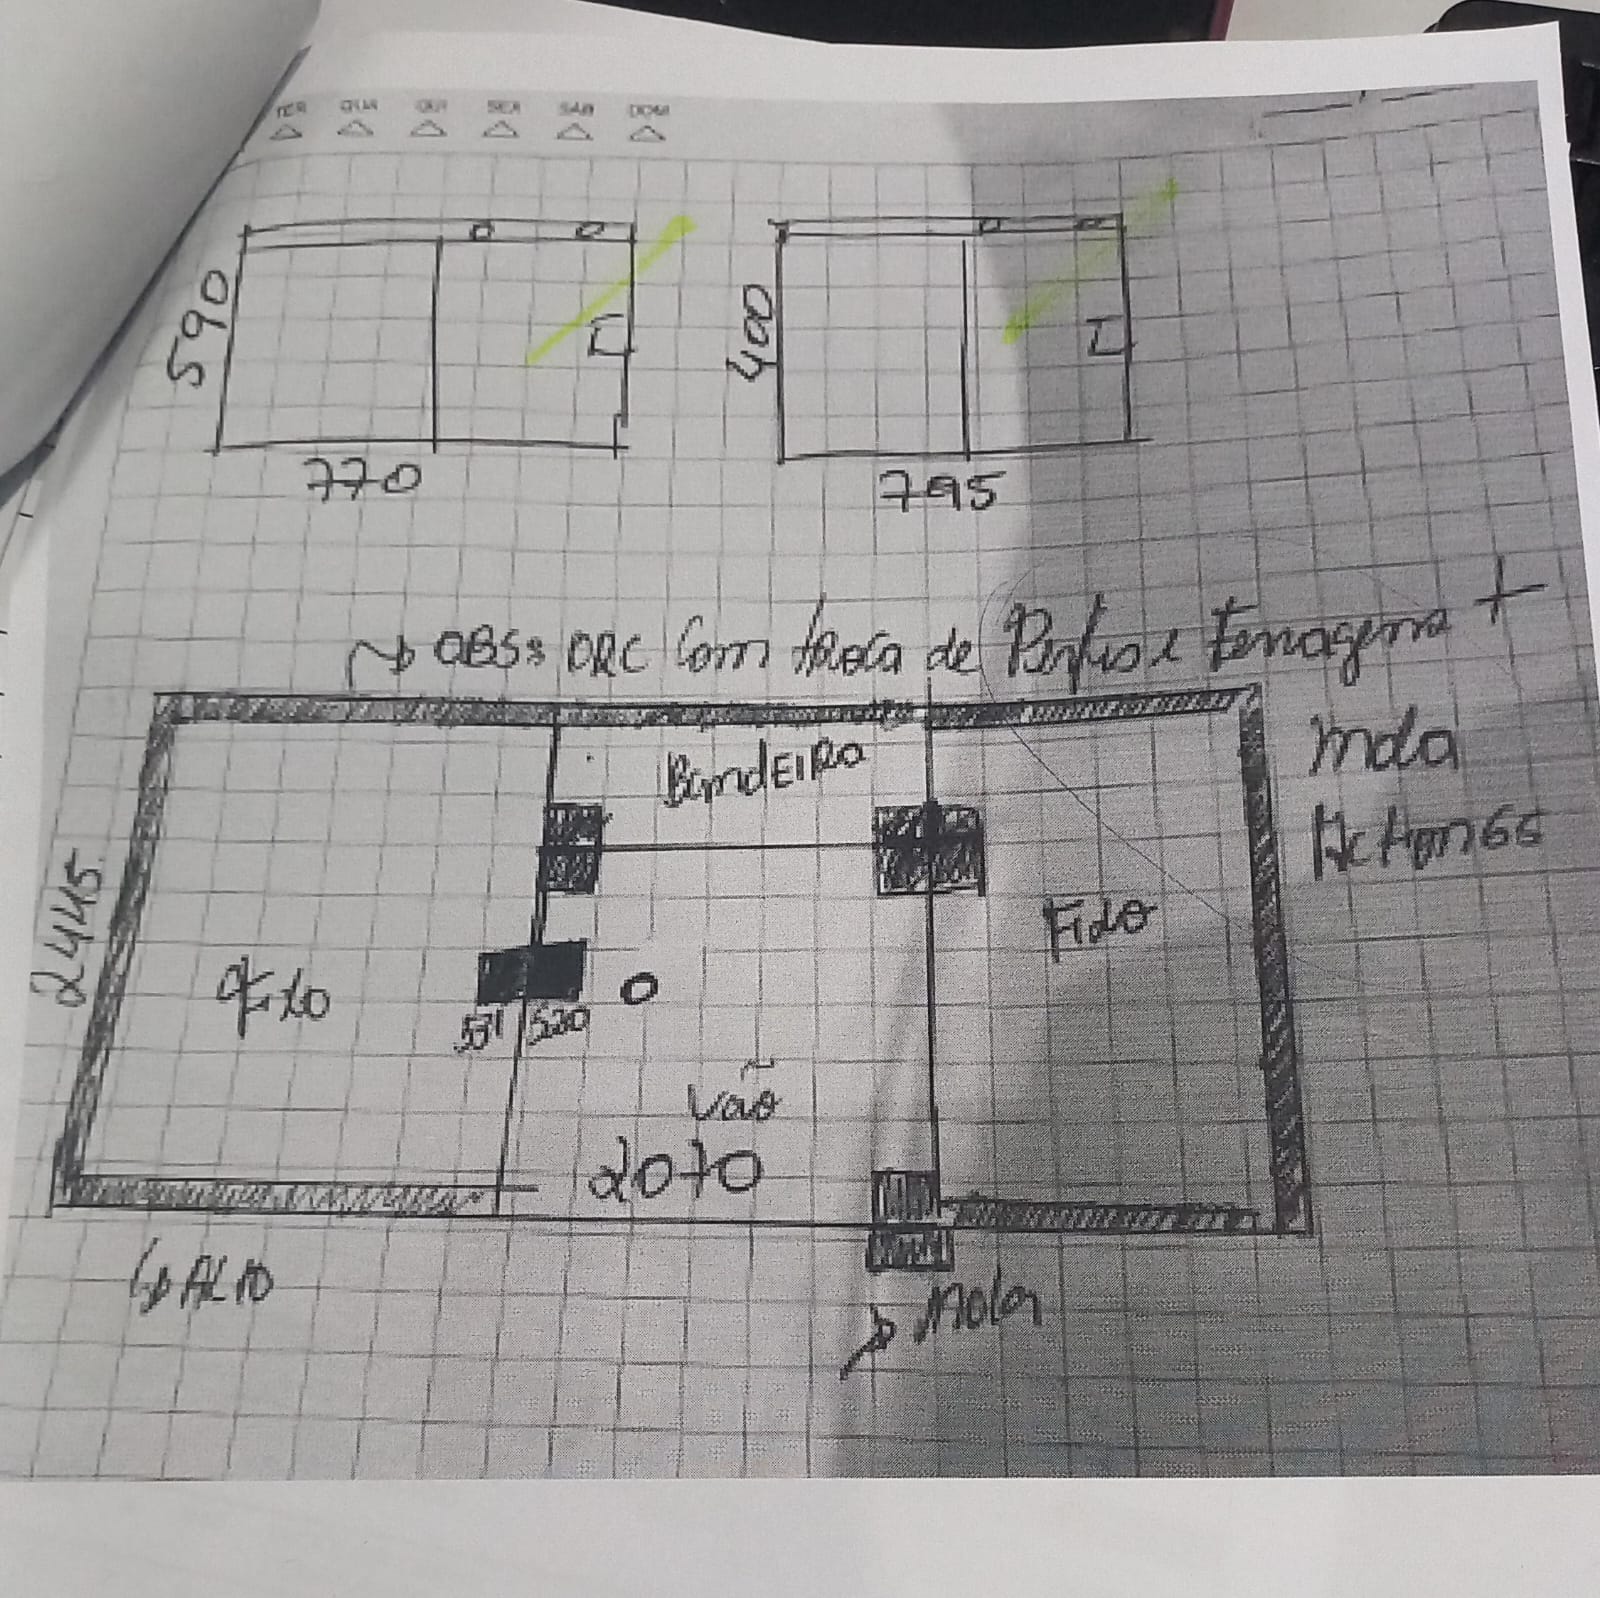 TER QUA QUI SEX SÁB DOM
590
770
400
795
OBS: ORC Com troca de Perfis e ferragema +
mola
BandEIRA
2445
Fixo
531 520
Vão
2070
Fixo
ALTO
Mola